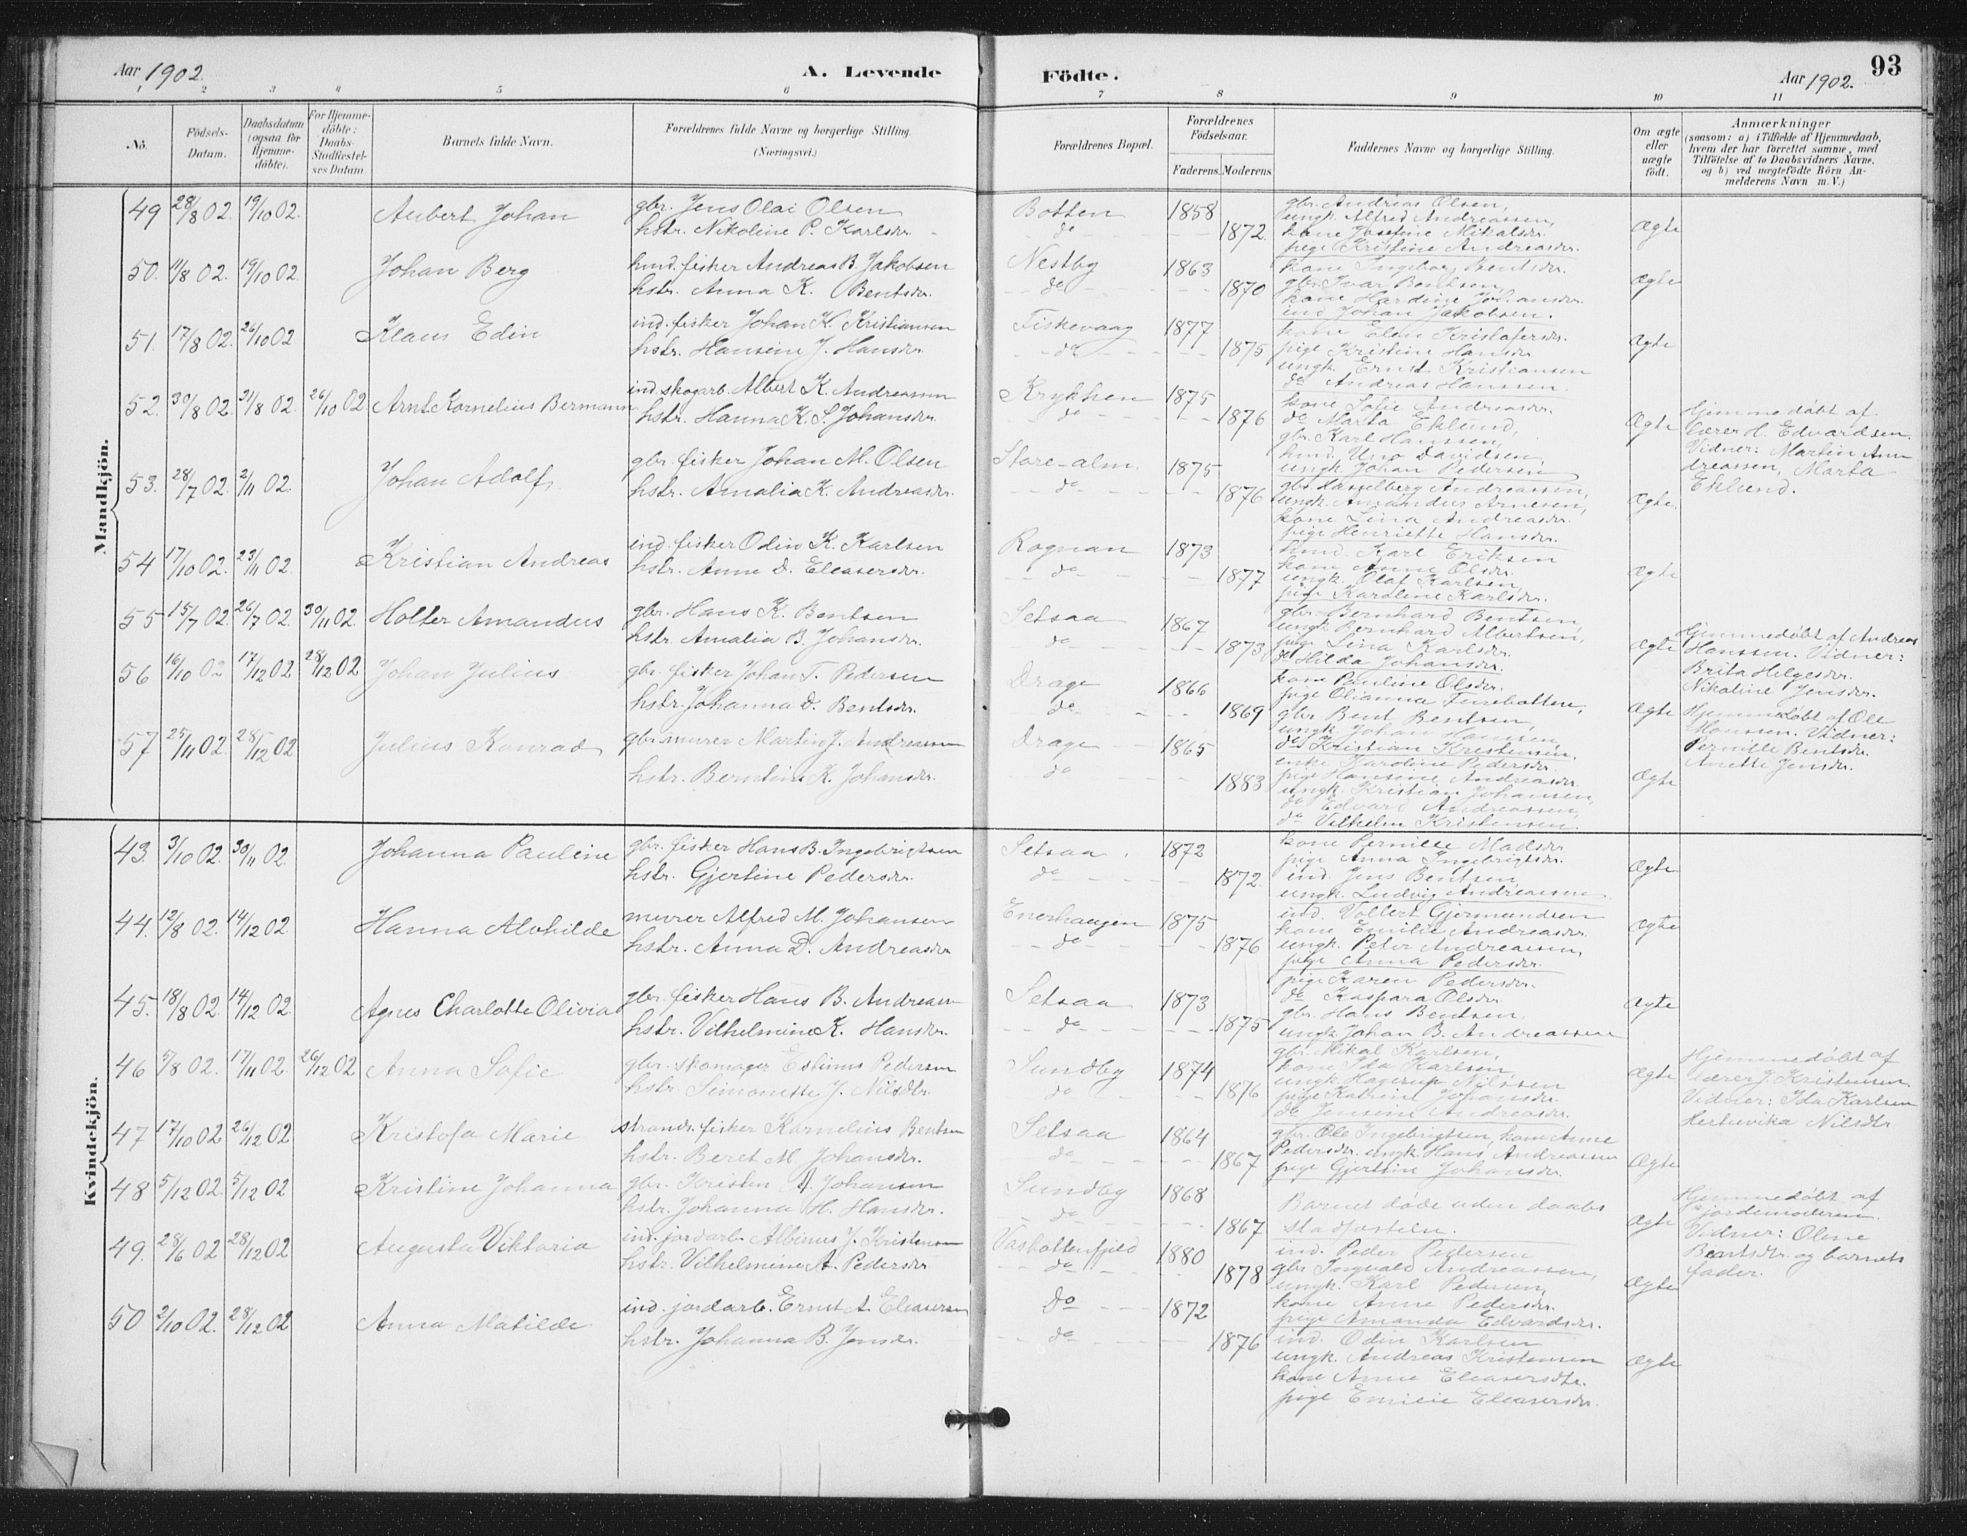 Aar 1902.
A. Levende
Födte.
Aar 1902.
93
1 2 3 4 5 6 7 8 9 10 11
No.
Födsels-Datum.
Daabsdatum (ogsaa for Hjemme-döbte).
For Hjemme-döbte: Daabs-Stadfæstel-ses Datum
Barnets fulde Navn.
Forældrenes fulde Navne og borgerlige Stilling. (Næringsvei.)
Forældrenes Bopæl.
Forældrenes Födselsaar.
Faderens. Moderens.
Faddernes Navne og borgerlige Stilling.
Om ægte eller uægte födt.
Anmærkninger
(saasom: a) i Tilfælde af Hjemmedaab, hvem der har forrettet samme, med Tilföielse af to Daabsvidners Navne, og b) ved uægtefödte Börn Anmelderens Navn m. V.)
Mandkjön.
49 28/8 02. 19/10 02. Aubert Johan gbr. Jens Olai Olsen Botten 1858 gbr. Andreas Olsen,
ungk. Alfred Andreassen,
hstr. Nikoline P. Karlsdr. do 1872. kone Josefine Mikalsdr. Ægte
pige Kristine Andreasdr.
50. 11/8 02. 19/10 02. Johan Berg hmd. fisker Andreas B. Jakobsen Nestby 1863 kone Ingeborg Bentsdr.
hstr. Anna K. Bentsdr. do 1870 gbr. Ivar Bentsen, Ægte
kone Hardine Johansdr.
ind. Johan Jakobsen.
51. 17/8 02. 26/10 02 Klaus Edin ind. fisker Johan K. Kristiansen Fiskevaag 1877 kone Elen Kristofersdr.
hstr. Hansine J. Hansdr. do 1875 pige Kristine Hansdr. Ægte
ungk. Ernst Kristiansen
do Andreas Hanssen.
52. 30/8 02. 31/8 02. 26/10 02 Arnt Kornelius Bermann ind. skogarb. Albert K. Andreassen Krykhen 1875 kone Sofie Andreasdr.
hstr. Hanna K. S. Johansdr. do 1876 do Marta Eklund, Ægte
gbr. Karl Hanssen,
hmd. Uno Davidsen,
Hjemmedöbt af
lærer H. Edvardsen.
Vidner: Martin Andreassen, Marta
Eklund.
53. 28/7 02. 2/11 02. Johan Adolf gbr. fisker Johan M. Olsen Store-alm. 1875 ungk. Johan Pedersen
hstr. Amalia K. Andreasdr. do 1876 gbr. Hasselberg Andreassen, Ægte.
ungk. Amandus Arnesen,
kone Lina Andreasdr.
pige Henriette Hansdr.
54 17/10 02. 23/11 02. Kristian Andreas ind. fisker Odin K. Karlsen Rognan 1873 hmd. Karl Eriksen
hstr. Anne D. Eleasersdr. do 1877 kone Anne Olsdr. Ægte
ungk. Olaf Karlsen
pige Karoline Karlsdr.
55 15/7 02. 26/7 02 30/11 02. Holter Amandus gbr. Hans K. Bentsen Setsaa 1867 gbr. Bernhard Bentsen,
hstr. Amalia B. Johansdr. do 1873 ungk. Bernhard Albertsen, Ægte
pige Lina Karlsdr.
do Hilda Johansdr.
Hjemmedöbt af Andreas
Hanssen. Vidner:
Brita Helgesdr.
Nikoline Jensdr.
56 16/10 02 17/12 02 28/12 02 Johan Julius gbr. fisker Johan T. Pedersen Drage 1866 kone Pauline Olsdr.
hstr. Johanna D. Bentsdr. do 1869 pige Olianna Furebotten, Ægte
gbr. Bent Bentsen,
ungk. Johan Hansen,
do Kristian Kristensen.
Hjemmedöbt af Ole
Monssen. Vidner:
Pernille Bentsdr.
Anette Jensdr.
57 25/11 02. 28/12 02 Julius Konrad gbr. murer Martin J. Andreassen Drage 1865 enke Karoline Pedersdr.
hstr. Berntine K. Johansdr. do 1883 pige Hansine Andreasdr. Ægte
ungk. Kristian Johansen,
do Edvard Andreassen,
do Vilhelm Kristensen
Kvindekjön.
43. 3/10 02. 30/11 02. Johanna Pauline gbr. fisker Hans B. Ingebrigtsen Setsaa 1872 kone Pernille Madsdr.
hstr. Gjertine Pedersdr. do 1872. pige Anna Ingebrigtsdr. Ægte
ind. Jens Bentsen,
ungk. Ludvig Andreassen.
44. 12/8 02. 14/12 02 Hanna Alvhilde murer Alfred M. Johansen Enerhaugen 1875 ind. Vollert Gjermundsen
hstr. Anna D. Andreasdr. do 1876 kone Emilie Andreasdr. Ægte
ungk. Peter Andreassen,
pige Anna Pedersdr.
45. 18/8 02. 14/12 02. Agnes Charlotte Olivia gbr. fisker Hans B. Andreassen Setsaa 1873 pige Karen Pedersdr.
hstr. Vilhelmine K. Hansdr. do 1875 do Kaspara Olsdr. Ægte
gbr. Hans Bentsen.
ungk. Johan B. Andreassen
46 5/8 02. 17/11 02 26/12 02 Anna Sofie gbr. skomager Estinus Pedersen Sundby 1874 gbr. Mikal Karlsen,
hstr. Simonette J. Nilsdtr. do 1876 kone Ida Karlsen, Ægte
ungk. Hagerup Nilssen
pige Katrine Johansdr.
do Jensine Andreasdr.
Hjemmedöbt af
lærer J. Kristensen.
Vidner: Ida Karlsen
Hertinvika Nilsdtr
47 17/10 02 26/12 02 Kristofa Marie strands. fisker Kornelius Bentsen Setsaa 1864 gbr. Ole Ingebrigtsen, kone Anne
hstr. Beret M Johansdr. do 1867 Pedersdr. ungk. Hans Andreassen Ægte
pige Gjertine Johansdr.
48 5/12 02. 5/12 02 Kristine Johanna gbr. Kristen A. Johansen Sundby 1868 Barnet döde uden daabs
hstr. Johanna H. Hansdr. do 1867 stadfæstelse. Ægte
Hjemmedöbt af
jordemoderen.
Vidner: Oline
Bentsdtr. og barnets
fader.
49. 28/6 02 28/12 02 Augusta Viktoria ind. jordarb. Albinus J. Kristensen Vasbottenfjeld 1880 ind. Peder Pedersen
hstr. Vilhelmine A. Pedersdr do 1878 gbr. Ingvald Andreassen, Ægte
ungk. Karl Pedersen,
kone Anne Pedersdr.
pige Amanda Edvardsdr.
50 2/10 02. 28/12 02 Anna Matilde ind. jordarb. Ernst A. Eleasersen Do 1872 ind. Odin Karlsen
hstr. Johanna B. Jensdr. do 1876 ungk. Andreas Kristensen Ægte
kone Anne Eleasersdtr.
pige Emilie Eleasersdr.